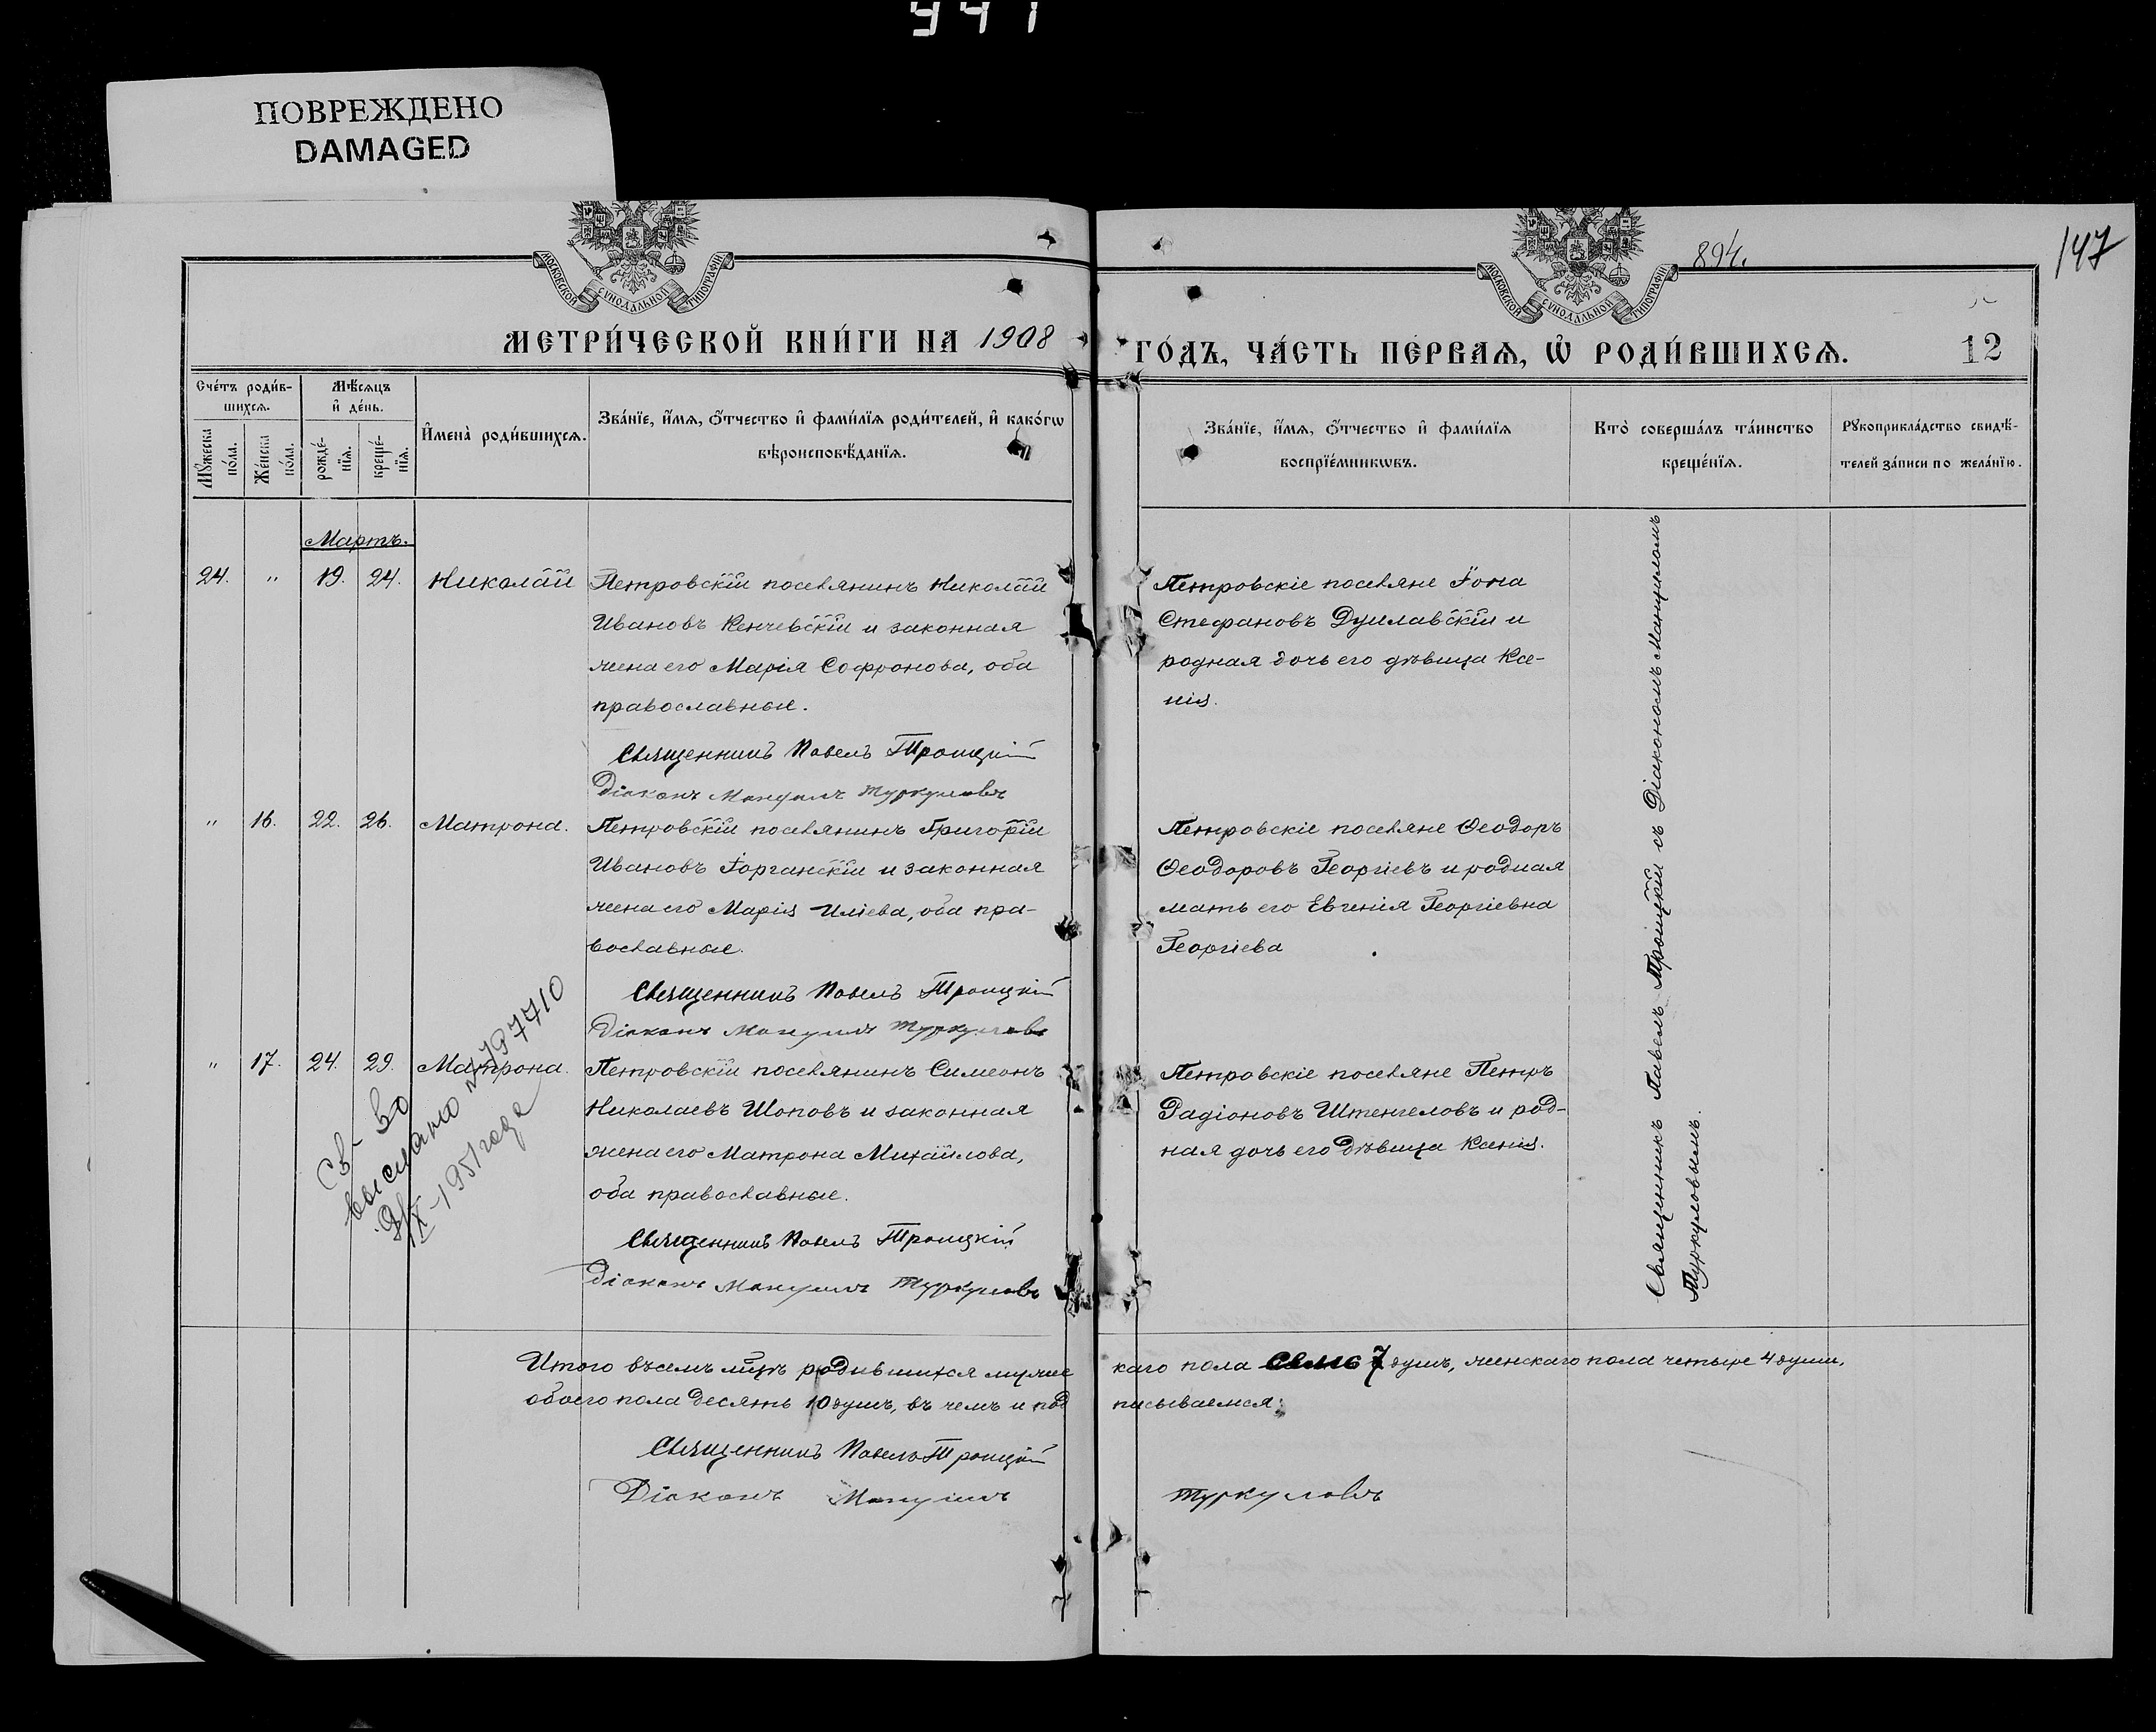 ПОВРЕЖДЕНО
DAMAGED
МОСКОВСКОЙ СѴНОДАЛЬНОЙ ТИПОГРАФІИ
МОСКОВСКОЙ СѴНОДАЛЬНОЙ ТИПОГРАФІИ
894.
147
МЕТРИ́ЧЕСКОЙ КНИ́ГИ НА 1908
ГО́ДЪ, ЧА́СТЬ ПЕ́РВАѦ, Ѡ҆ РОДИ́ВШИХСѦ.
12
Сче́тъ роди́в-
шихсѧ.
Мѣ́сѧцъ
и҆ де́нь.
Мꙋ́жеска
по́ла.
Же́нска
по́ла.
рожде́-
нїѧ.
креще́-
нїѧ.
И҆мена̀ роди́вшихсѧ.
Зва́нїе, и҆́мѧ, ѻ҆́тчество и҆ фами́лїѧ роди́телей, и҆ како́гѡ
вѣроисповѣ́данїѧ.
Зва́нїе, и҆́мѧ, ѻ҆́тчество и҆ фами́лїѧ
воспрїе́мникѡвъ.
Кто̀ соверша́лъ та́инство
креще́нїѧ.
Рꙋкоприкла́дство свидѣ́-
телей за́писи по жела́нїю.
Мартъ.
24. " 19. 24. Николай
Петровскій поселянинъ Николай
Ивановъ Кенчевскій и законная
жена его Марія Софронова, оба
православные.
Священникъ Павелъ Троицкій
Діаконъ Мануилъ Туркуловъ
Петровскіе поселяне Іона
Стефановъ Душлавскій и
родная дочь его дѣвица Ксе-
нія.
" 16. 22. 26. Матрона.
Петровскій поселянинъ Григорій
Ивановъ Іорганскій и законная
жена его Марія Иліева, оба пра-
вославные.
Священникъ Павелъ Троицкій
Діаконъ Мануилъ Туркуловъ
Петровскіе поселяне Ѳеодоръ
Ѳеодоровъ Георгіевъ и родная
мать его Евгенія Георгіевна
Георгіева
" 17. 24. 29. Матрона.
Петровскій поселянинъ Симеонъ
Николаевъ Шоповъ и законная
жена его Матрона Михайлова,
оба православные.
Священникъ Павелъ Троицкій
Діаконъ Мануилъ Туркуловъ
Петровскіе поселяне Петръ
Радіоновъ Штенгеловъ и род-
ная дочь его дѣвица Ксенія.
Св-во
выслано № 797710
IX-1951 года
Священникъ Павелъ Троицкій съ Діакономъ Мануиломъ
Туркуловымъ.
Итого въ семъ м-цѣ родившихся мужес
каго пола семь 7 душъ, женскаго пола четыре 4 души,
обоего пола десять 10 душъ, въ чемъ и под
писываемся:
Священникъ Павелъ Троицкій
Діаконъ Мануилъ Туркуловъ